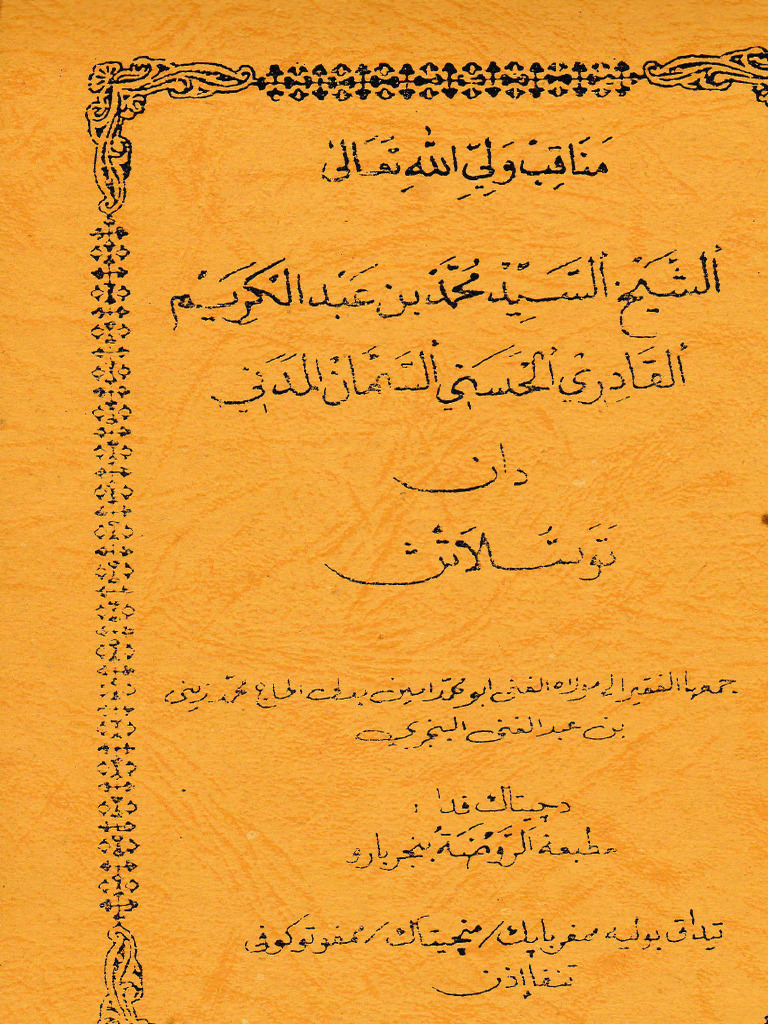 مَنَاقِبْ وَلِيِّ اللهِ تَعَالىٰ
ألشَّيْخ ألسَّيِّدْ مُحَمَّدْ بن عَبْد الْكَرِيْم
ألقَادِرِيْ ألحَسَنِي ألسَّمَّانْ المَدَنِي
دان
تَوَسُّلَاتْث
جمعها الفقير الى مولاه الغني ابو محمد امين بدلى الحاج محمد زيني
بن عبد الغني البنجري
دچيتاك فدا :
مطبعة اَلرَّوْضَةُ بنجربارو
تيداق بوليه ممفرباپك/منچيتاك/ممفوتوكوفى
تنفا إذن